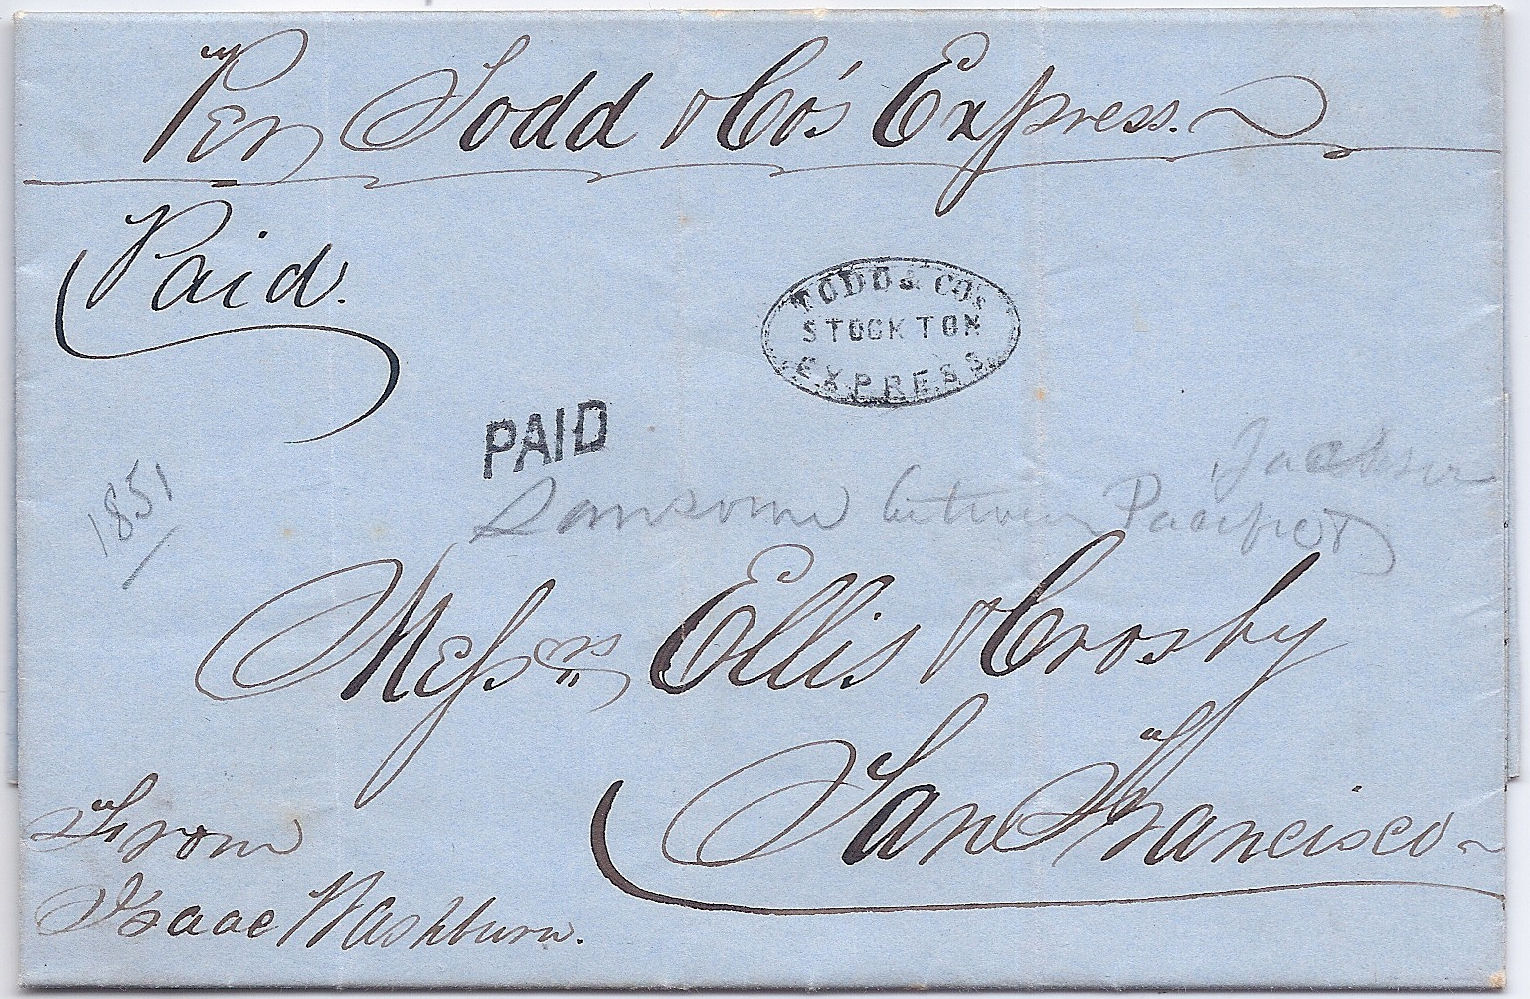 Per Todd & Co's Express.
Paid.
TODD & CO'S
STOCKTON
EXPRESS
PAID
1851
Jackson
Sansome between Pacific &
Messrs Ellis & Crosby
San Francisco
From
Isaac Washburn.